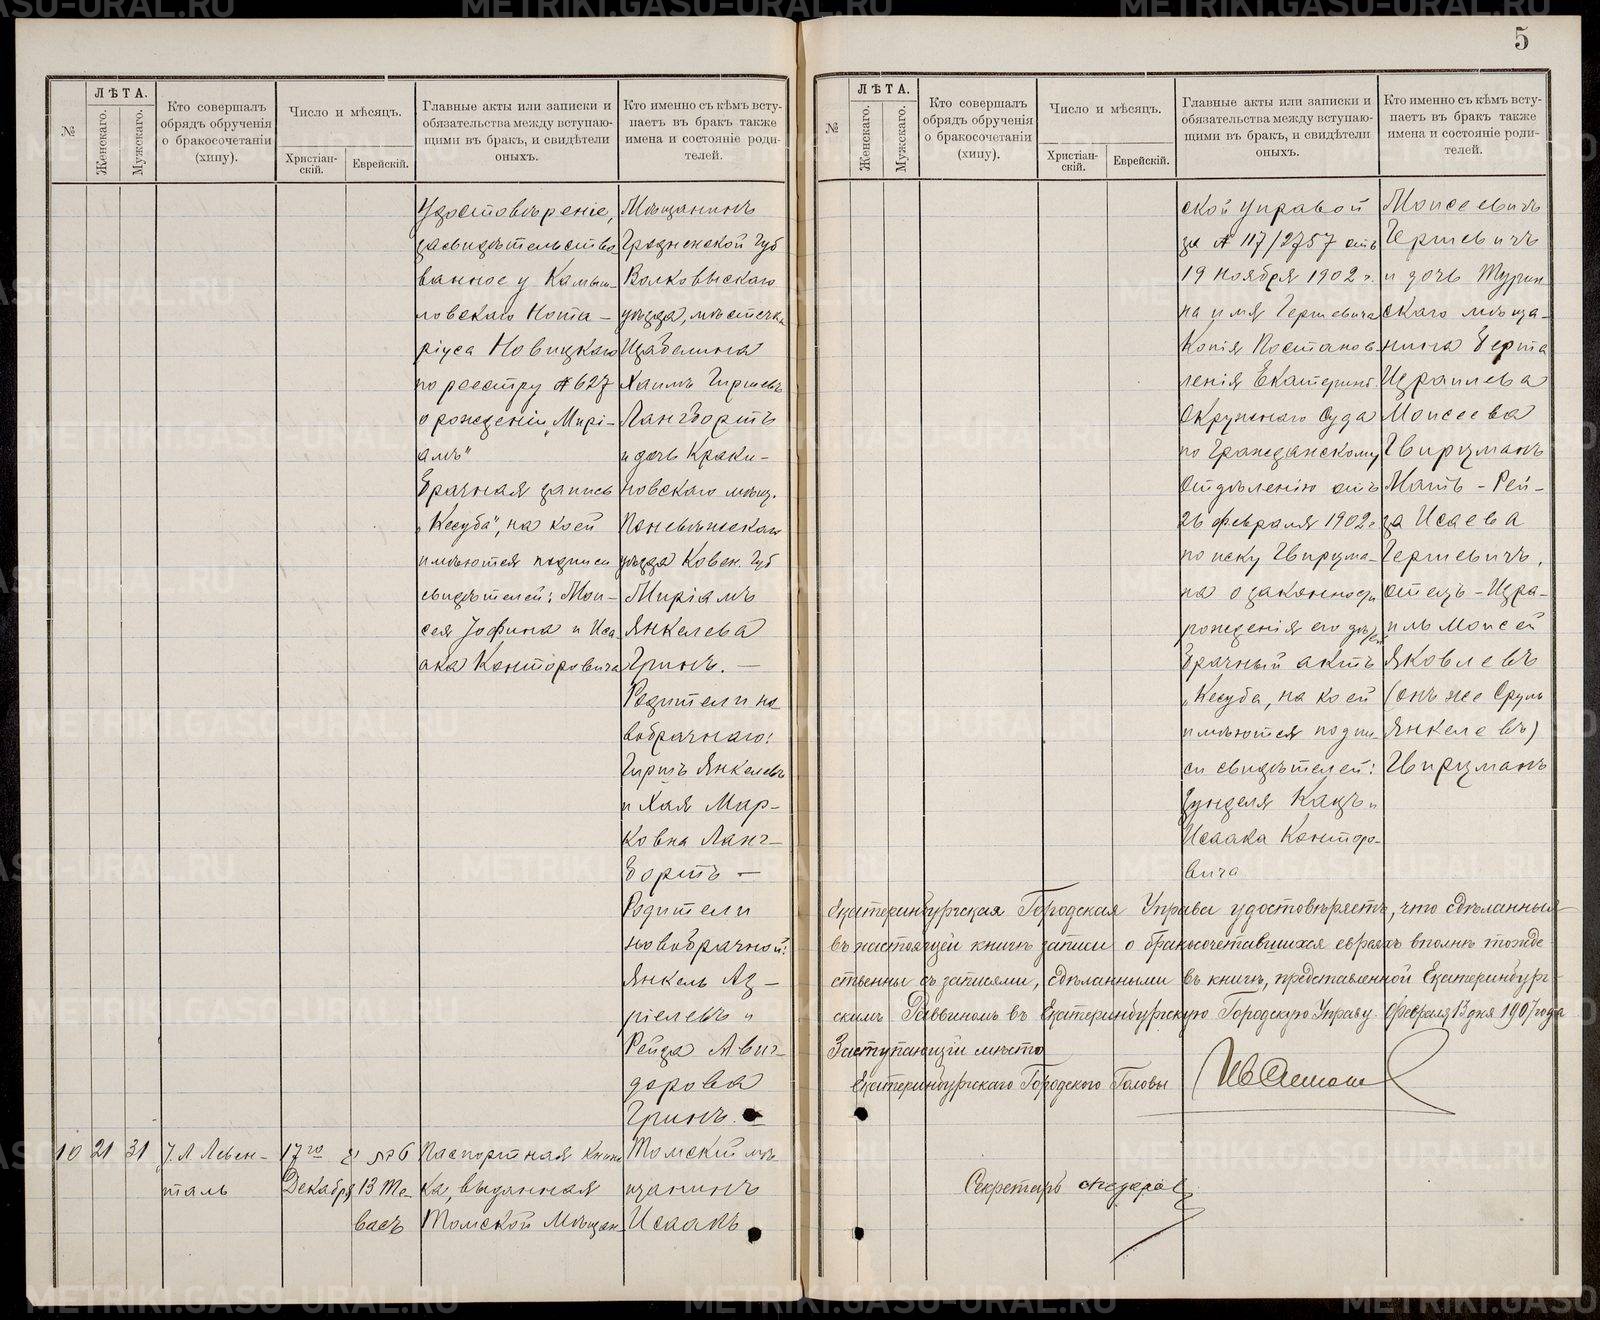 5
№
ЛѢТА.
Женскаго.
Мужскаго.
Кто совершалъ
обрядъ обрученія
о бракосочетаніи
(хипу).
Число и мѣсяцъ.
Христіан-
скій.
Еврейскій.
Главные акты или записки и
обязательства между вступаю-
щими въ бракъ, и свидѣтели
оныхъ.
Кто именно съ кѣмъ всту-
паетъ въ бракъ также
имена и состояніе роди-
телей.
Удостовѣреніе,
засвидѣтельство
ванное у Камыш-
ловскаго Нота-
ріуса Новицкаго
по реестру № 627
о рожденіи „Мирі-
амъ"
Брачная запись
„Кесуба", на коей
имѣются подписи
свидѣтелей: Мои-
сея Іофина и Иса-
ака Канторовича
Мѣщанинъ
Гродненской Губ
Волковыскаго
уѣзда, мѣстечка
Изабелина
Хаимъ Гиршевъ
Лангбортъ
и дочь Краки-
новскаго мѣщ.
Поневѣжскаго
уѣзда Ковен. Губ
Миріамъ
Янкелева
Гринъ. —
Родители но
вобрачнаго:
Гиршъ Янкелевъ
и Хая Мар-
ковна Ланг-
бортъ —
Родители
новобрачной:
Янкель Аз-
ріелевъ и
Рейза Авиг-
дорова
Гринъ.
10 21 31
І. Л Левен-
таль
17го
Декабря
13 Те-
васъ
Паспортная книж
ка, выданная
Томской Мѣщан-
Томскій мѣ-
щанинъ
Исаакъ
№
ЛѢТА.
Женскаго.
Мужскаго.
Кто совершалъ
обрядъ обрученія
о бракосочетаніи
(хипу).
Число и мѣсяцъ.
Христіан-
скій.
Еврейскій.
Главные акты или записки и
обязательства между вступаю-
щими въ бракъ, и свидѣтели
оныхъ.
Кто именно съ кѣмъ всту-
паетъ въ бракъ также
имена и состояніе роди-
телей.
ской управой
за № 117/2757 отъ
19 ноября 1902 г.
на имя Гершевича
Копія Постанов-
ленія Екатеринб.
Окружнаго Суда
по Гражданскому
Отдѣленію отъ
26 февраля 1902 г
по иску Гвирцма-
на о законности
рожденія его дѣтей
Брачный актъ
„Кесуба, на коей
имѣются подпи
си свидѣтелей:
Зунделя Кацъ и
Исаака Канторо-
вича
Моисеевичъ
Гершевичъ
и дочь Турин
скаго мѣща-
нина Берта
Израилева
Моисеева
Гвирцманъ
Мать - Рей-
за Исаева
Гершевичъ,
отецъ - Изра-
иль Моисей
Яковлевъ
(онъ же Сруль
Янкелевъ)
Гвирцманъ
Екатеринбургская Городская Управа удостовѣряетъ, что сдѣланныя
въ настоящей книгѣ записи о бракосочетавшихся евреяхъ вполнѣ тожде
ственны съ записями, сдѣланными въ книгѣ, представленной Екатеринбург-
скимъ Раввиномъ въ Екатеринбургскую Городскую Управу. Февраля 13 дня 1907 года
Заступающій мѣсто
Екатеринбургскаго Городского Головы
Секретарь
METRIKI.GASU-URAL.RU